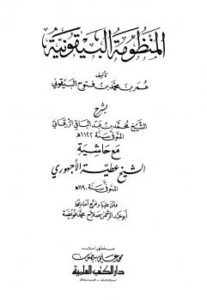 المنظومة البيقونية
تأليف
عمر بن محمد بن فتوح البيقوني
بشرح
الشيخ محمد بن عبد الباقي الزرقاني
المتوفى سنة ١١٢٢هـ
مع حاشية
الشيخ عطية الأجهوري
المتوفى سنة ١١٩٠هـ
علق عليه وخرج أحاديثها
أبو عبد الرحمن صلاح محمد عويضة
منشورات
محمد علي بيضون
دار الكتب العلمية